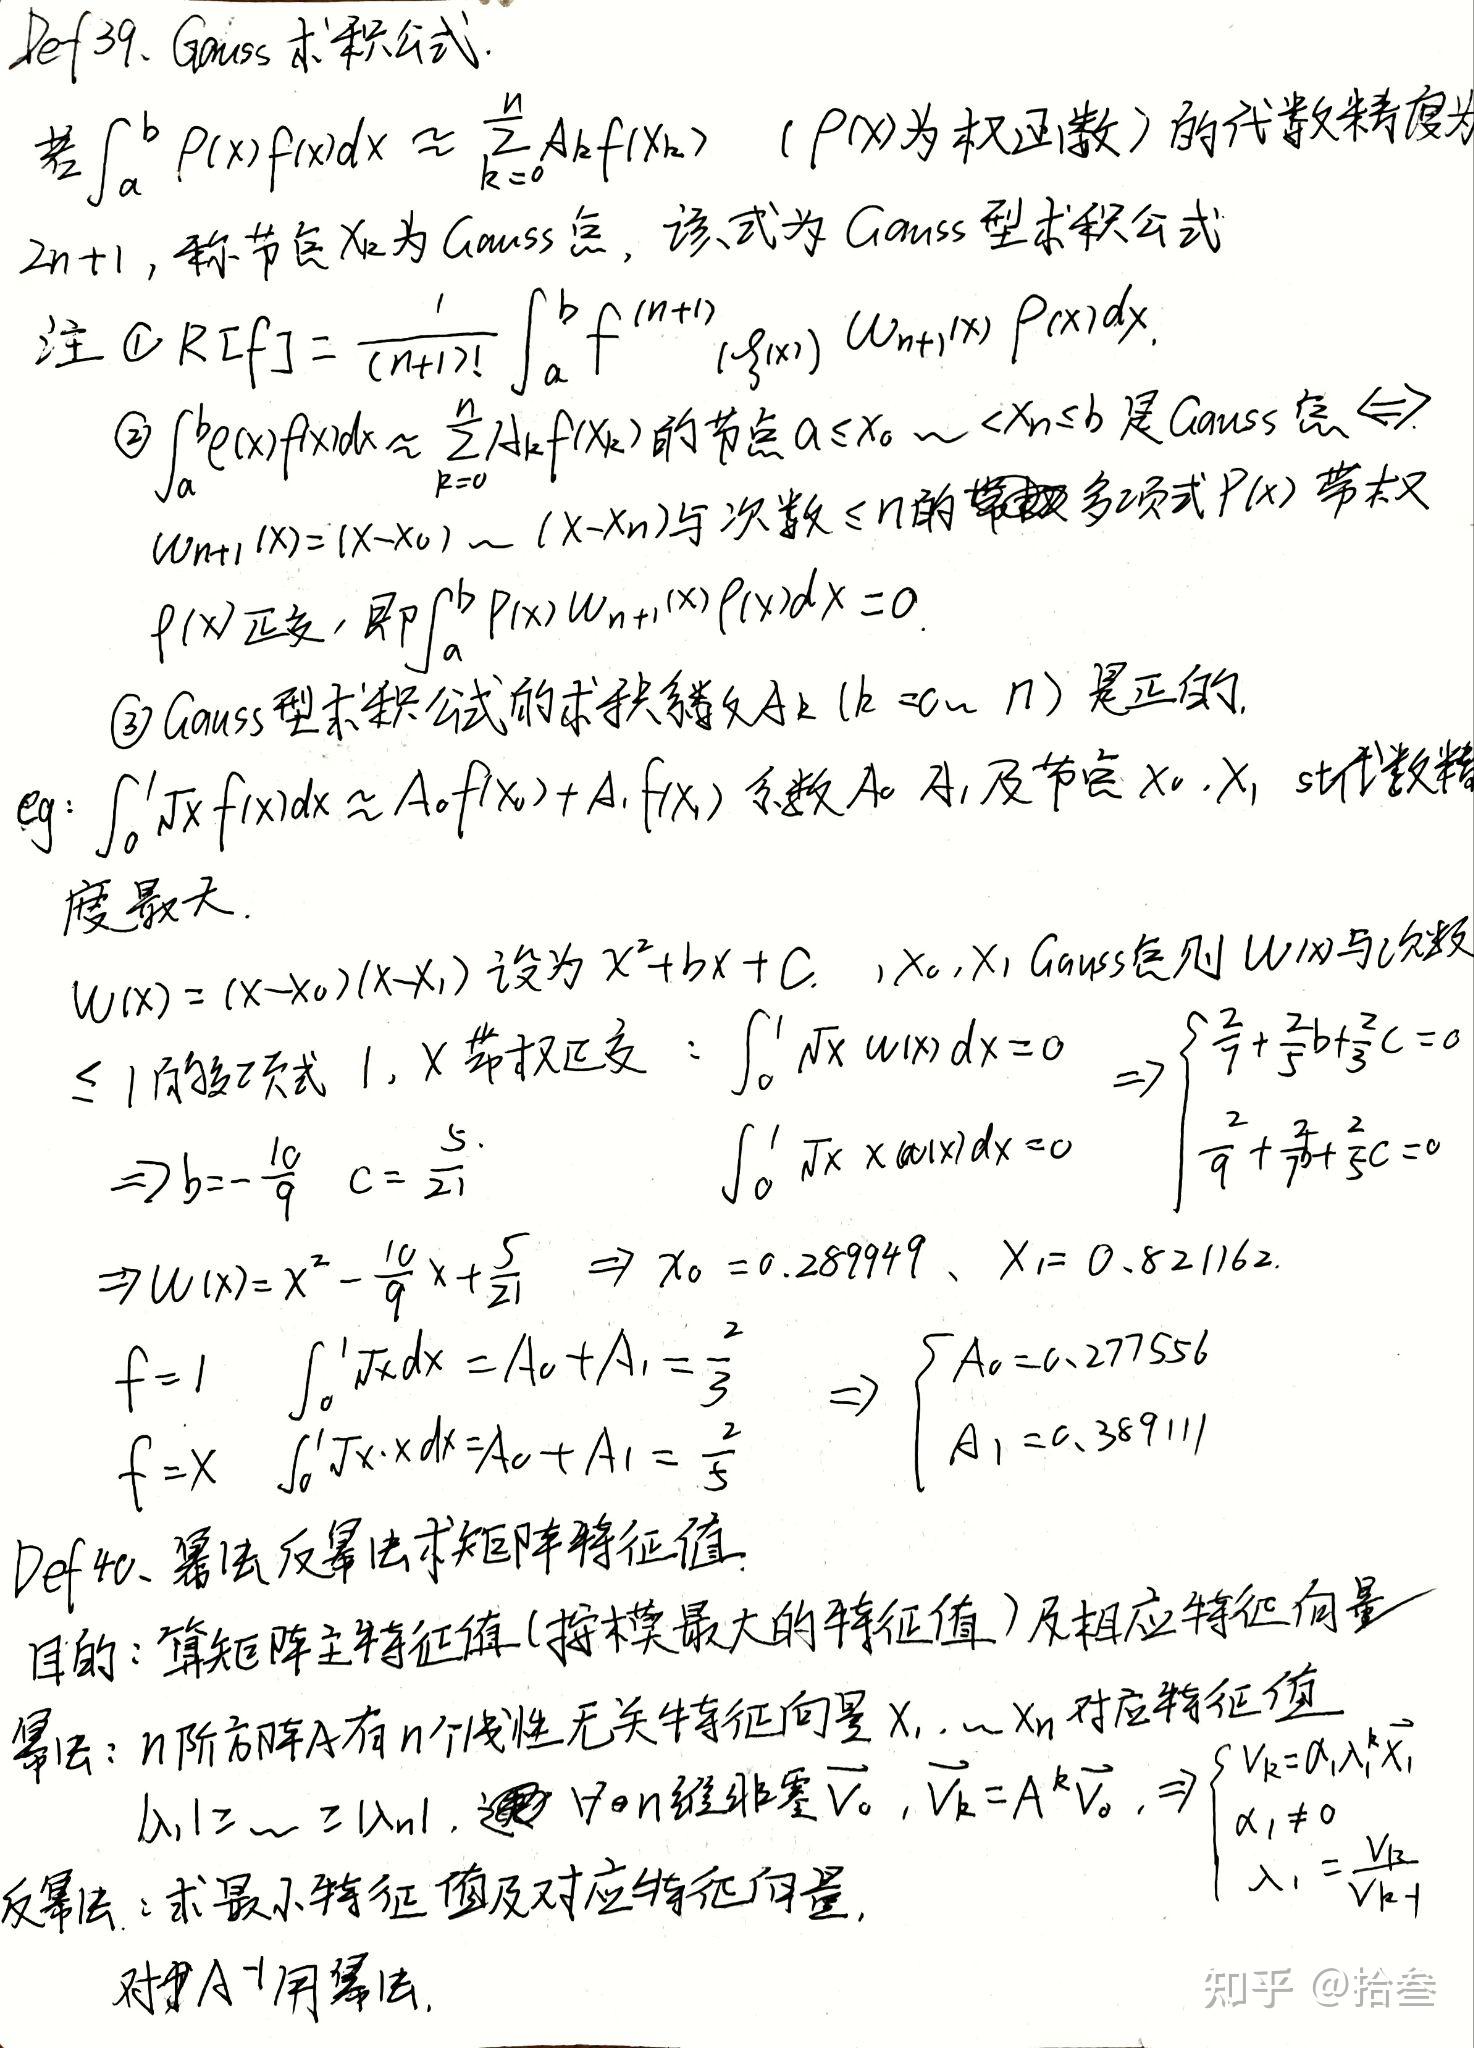 Def 39、Gauss 求积公式.
若 ∫_a^b ρ(x)f(x)dx ≈ Σ_{k=0}^n A_k f(x_k) (ρ(x)为权函数)的代数精度为
2n+1, 称节点 x_k 为 Gauss 点, 该式为 Gauss 型求积公式
注 ① R[f] = 1/(n+1)! ∫_a^b f^{(n+1)}(ξ(x)) ω_{n+1}(x) ρ(x)dx.
② ∫_a^b ρ(x)f(x)dx ≈ Σ_{k=0}^n A_k f(x_k) 的节点 a≤x_0 ~ <x_n≤b 是 Gauss 点 ⇔
ω_{n+1}(x)=(x-x_0) ~ (x-x_n)与次数≤n的多项式 P(x) 带权
ρ(x)正交, 即 ∫_a^b P(x)ω_{n+1}(x)ρ(x)dx=0.
③ Gauss 型求积公式的求积系数 A_k (k=0~ n) 是正的.
eg: ∫_0^1 √x f(x)dx ≈ A_0f(x_0)+A_1f(x_1) 系数 A_0 A_1 及节点 x_0 . x_1 st代数精
度最大.
W(x) = (x-x_0)(x-x_1) 设为 x²+bx+c. , x_0, x_1 Gauss点则 W(x)与次数
≤1的多项式 1, x 带权正交 : ∫_0^1 √x w(x)dx=0 ⇒ { 2/7+2/5b+2/3c=0
∫_0^1 √x x w(x)dx=0 2/9+2/7b+2/5c=0
⇒ b=-10/9 c=5/21
⇒ W(x)=x²-10/9x+5/21 ⇒ x_0=0.289949、 x_1=0.821162.
f=1 ∫_0^1 √x dx=A_0+A_1=2/3 ⇒ { A_0=0.277556
f=x ∫_0^1 √x·x dx=A_0+A_1=2/5 A_1=0.389111
Def 40、幂法反幂法求矩阵特征值.
目的: 算矩阵主特征值(按模最大的特征值)及相应特征向量
幂法: n阶方阵A有n个线性无关特征向量 x_1 . ~ x_n 对应特征值
|λ_1|≥ ~ ≥|λ_n|. ∀ n维非零 v⃗_0 , v⃗_k=A^k v⃗_0 , ⇒ { v_k=α_1λ_1^k x⃗_1
α_1≠0
λ_1=v_k/v_{k-1}
反幂法: 求最小特征值及对应特征向量.
对 A^{-1} 用幂法.
知乎 @拾叁